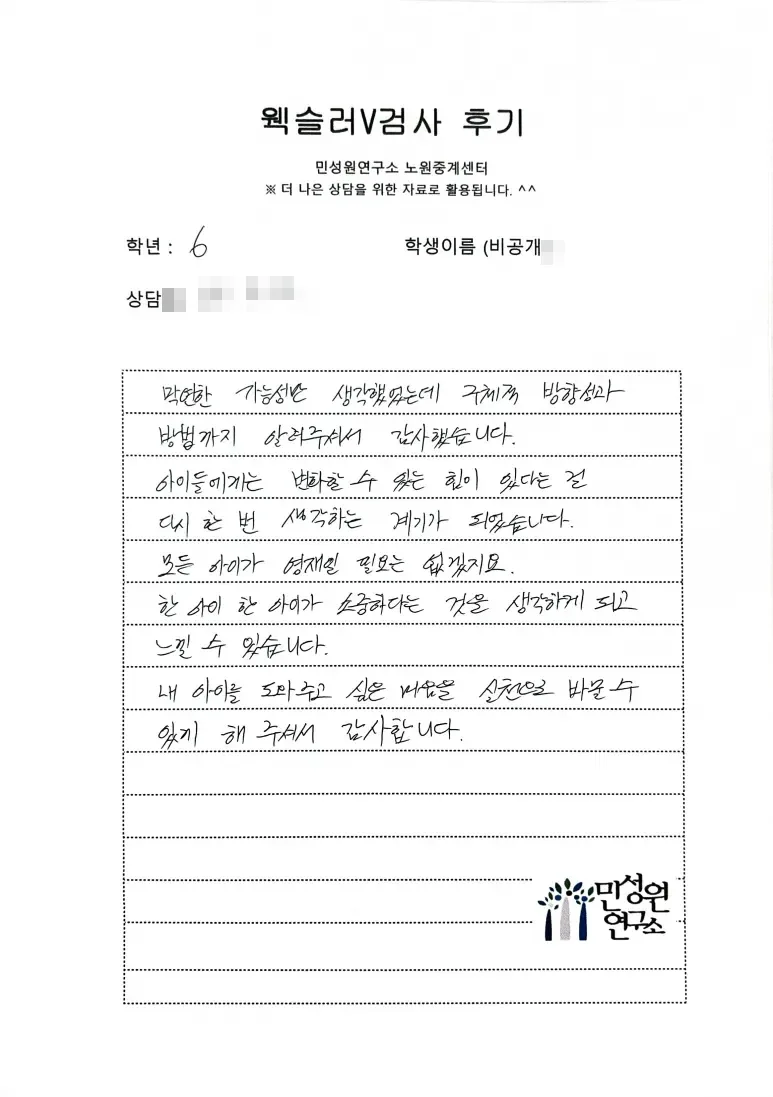 웩슬러V검사 후기
민성원연구소 노원중계센터
※ 더 나은 상담을 위한 자료로 활용됩니다. ^^
학년 : 6
학생이름 (비공개
상담
막연한 가능성만 생각했었는데 구체적 방향성과
방법까지 알려주셔서 감사했습니다.
아이들에게는 변화할 수 있는 힘이 있다는 걸
다시 한 번 생각하는 계기가 되었습니다.
모든 아이가 영재일 필요는 없겠지요.
한 아이 한 아이가 소중하다는 것을 생각하게 되고
느낄 수 있습니다.
내 아이를 도와주고 싶은 마음을 실천으로 바꿀 수
있게 해 주셔서 감사합니다.
민성원
연구소